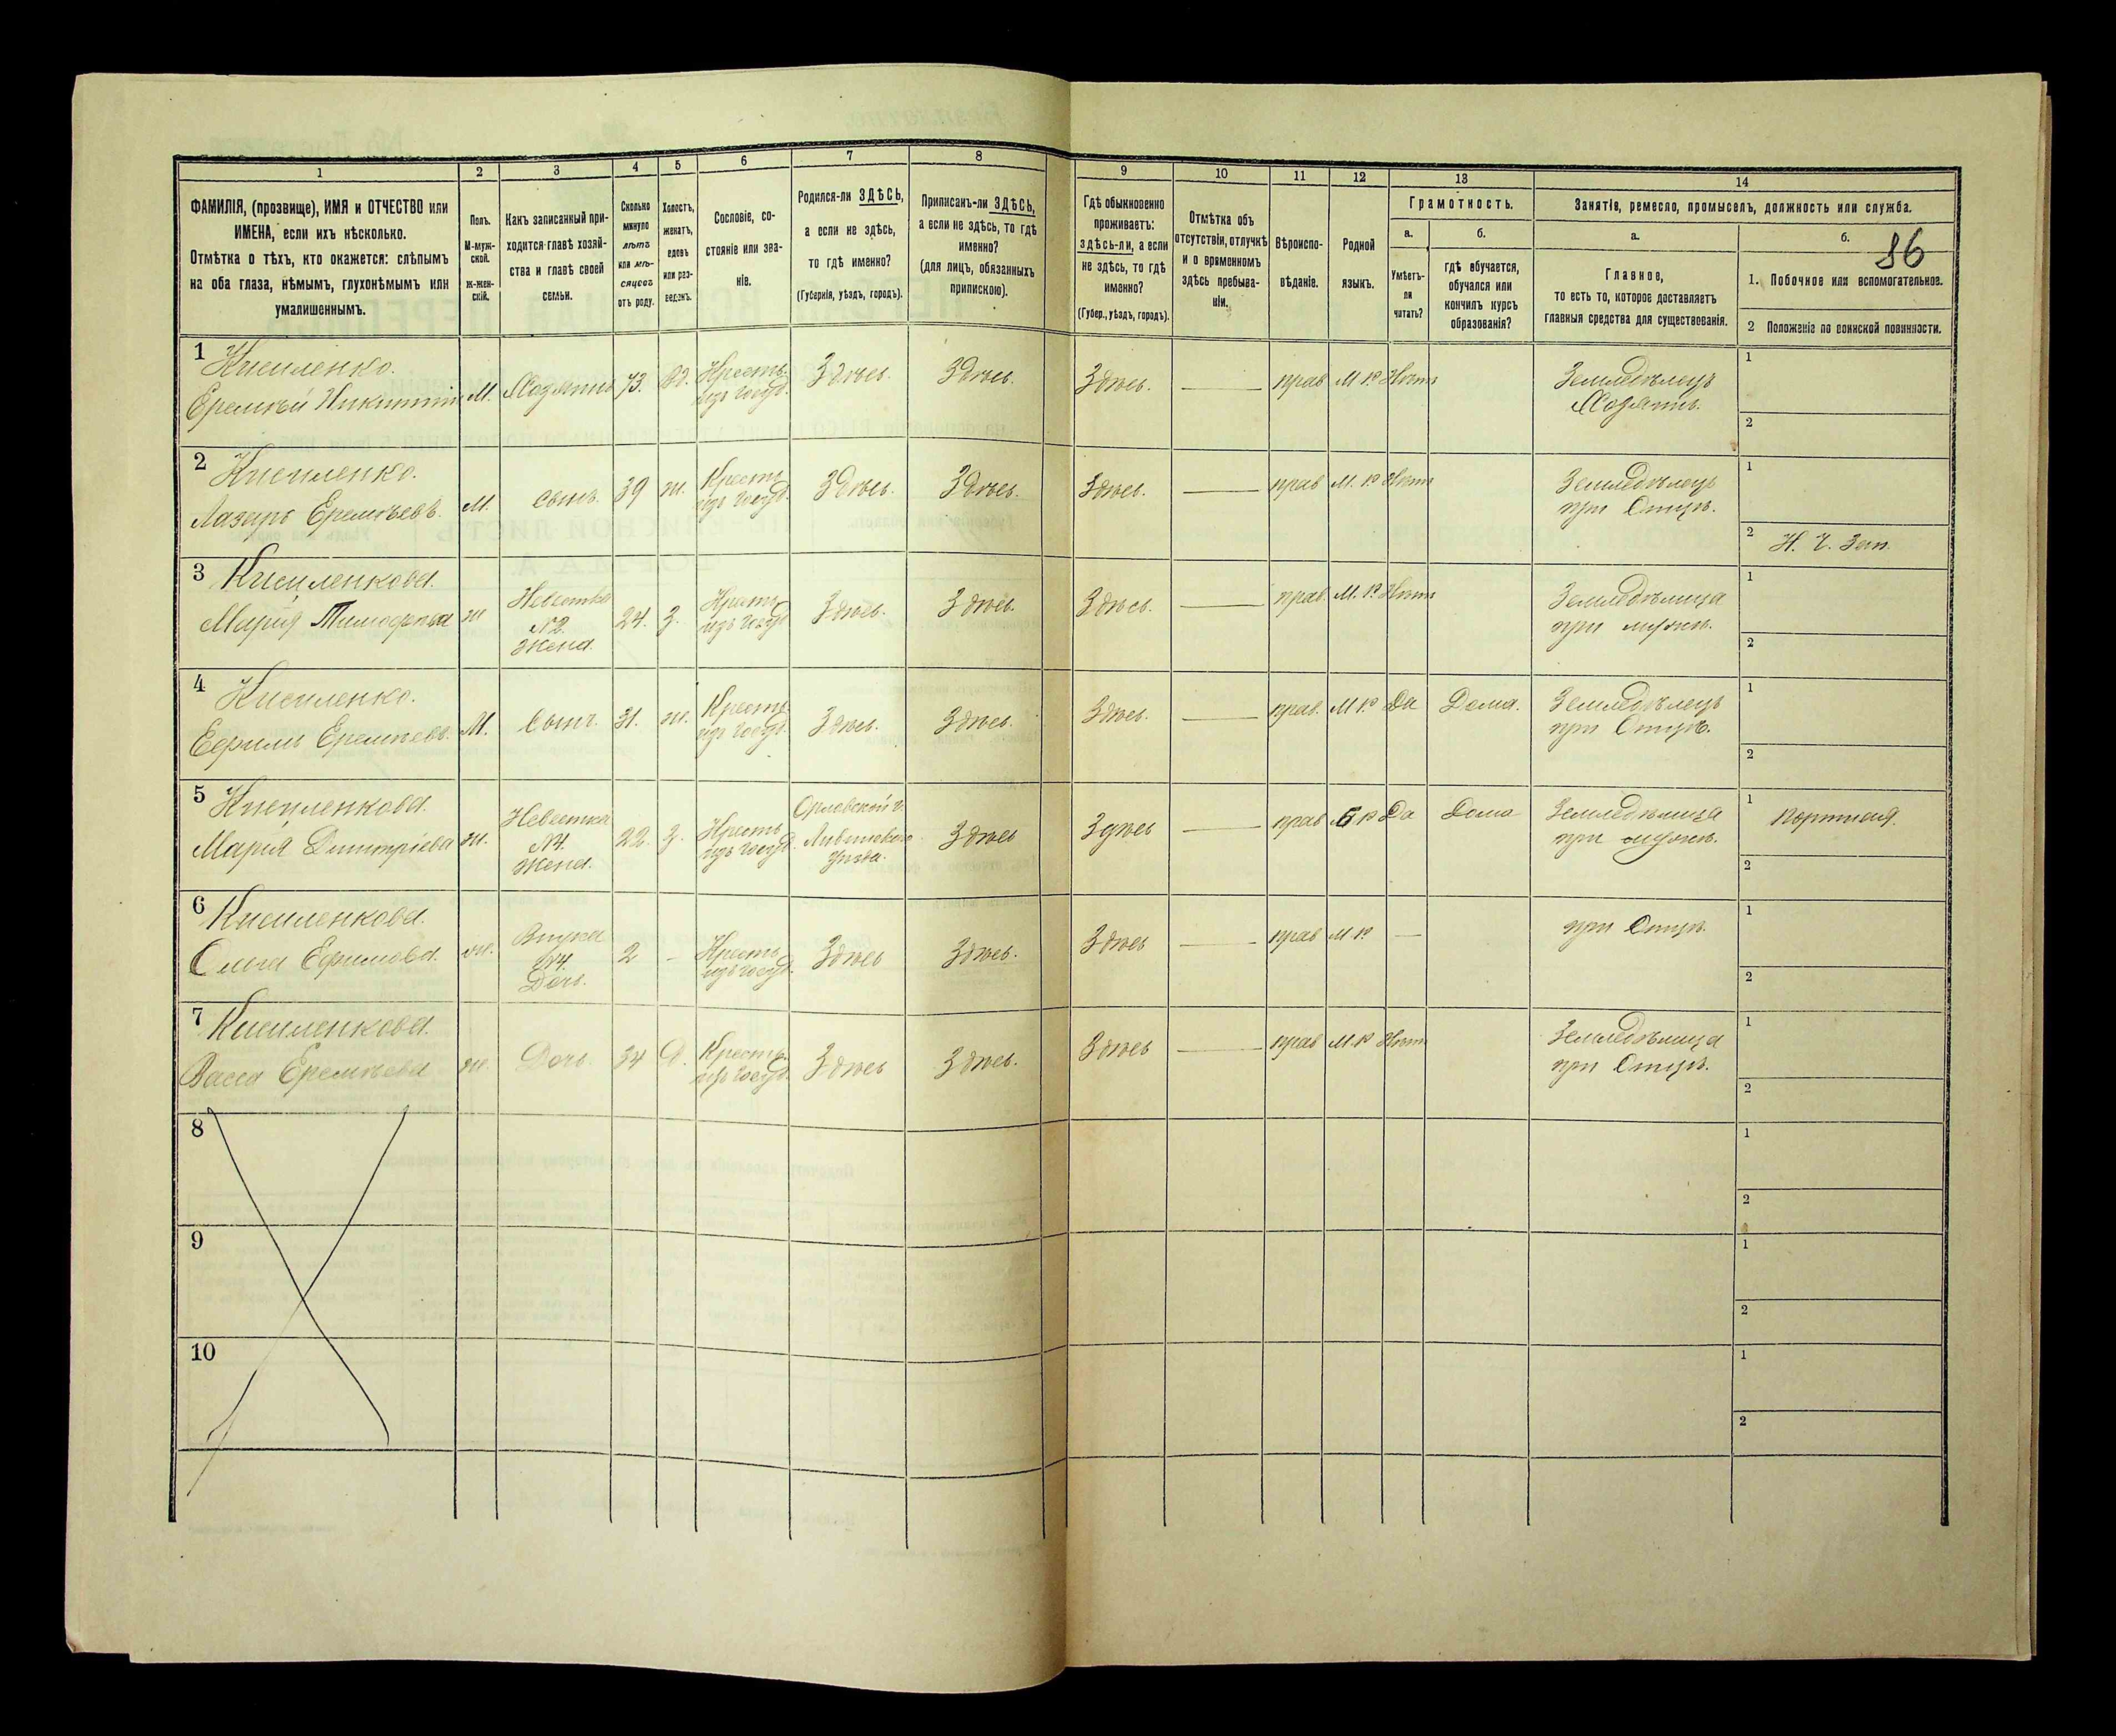 1
2
3
4
5
6
7
8
ФАМИЛІЯ, (прозвище), ИМЯ и ОТЧЕСТВО или
ИМЕНА, если ихъ нѣсколько.
Отмѣтка о тѣхъ, кто окажется: слѣпымъ
на оба глаза, нѣмымъ, глухонѣмымъ или
умалишеннымъ.
Полъ.
М-муж-
ской.
Ж-жен-
скій.
Какъ записанный при-
ходится главѣ хозяй-
ства и главѣ своей
семьи.
Сколько
минуло
лѣтъ
или мѣ-
сяцевъ
отъ роду.
Холостъ,
женатъ,
вдовъ
или раз-
веденъ.
Сословіе, со-
стояніе или зва-
ніе.
Родился-ли ЗДѢСЬ,
а если не здѣсь,
то гдѣ именно?
(Губернія, уѣздъ, городъ).
Приписанъ-ли ЗДѢСЬ,
а если не здѣсь, то гдѣ
именно?
(для лицъ, обязанныхъ
припискою).
9
10
11
12
13
14
Гдѣ обыкновенно
проживаетъ:
здѣсь-ли, а если
не здѣсь, то гдѣ
именно?
(Губер., уѣздъ, городъ).
Отмѣтка объ
отсутствіи, отлучкѣ
и о временномъ
здѣсь пребыва-
ніи.
Вѣроиспо-
вѣданіе.
Родной
языкъ.
Грамотность.
а.
Умѣетъ-
ли
читать?
б.
гдѣ обучается,
обучался или
кончилъ курсъ
образованія?
Занятіе, ремесло, промыселъ, должность или служба.
а.
Главное,
то есть то, которое доставляетъ
главныя средства для существованія.
б.
86
1. Побочное или вспомогательное.
2 Положеніе по воинской повинности.
1 Кисиленко.
Еремѣй Никитинъ М. Хозяинъ 73. Вд. Кресть.
изъ госуд. Здѣсь. Здѣсь. Здѣсь. прав М. Р. Нѣтъ Земледѣлецъ
Хозяинъ.
1
2
2 Кисиленко.
Лазарь Еремѣевъ. М. сынъ. 39 ж. Кресть.
изъ госуд. Здѣсь. Здѣсь. Здѣсь. прав М. Р. Нѣтъ Земледѣлецъ
при Отцѣ.
1
2 Н. Ч. Зап.
3 Кисиленкова.
Марія Тимофѣева ж Невестка
№2.
Жена. 24. З. Кресть
изъ госуд Здѣсь. Здѣсь. Здѣсь. прав. М. Р. Нѣтъ Земледѣлица
при мужѣ.
1
2
4 Кисиленко.
Ефимъ Еремѣевъ. М. Сынъ. 31. ж. Кресть
изъ госуд. Здѣсь. Здѣсь. Здѣсь. прав. М Р Да Дома. Земледѣлецъ
при Отцѣ.
1
2
5 Кисиленкова.
Марія Дмитріева ж. Невестка
№4.
Жена. 22. З. Кресть
изъ госуд. Орловской г.
Ливинскаго
уѣзда. Здѣсь Здѣсь прав Б Р Да Дома Земледѣлица
при мужѣ.
1 Портная.
2
6 Кисиленкова.
Ольга Ефимова. ж. Внука
№4.
Дочь. 2 - Кресть
изъ госуд. Здѣсь Здѣсь. Здѣсь прав М Р. — при Отцѣ.
1
2
7 Кисиленкова.
Васса Еремѣева ж. Дочь. 34 Д. Кресть.
изъ госуд. Здѣсь Здѣсь. Здѣсь прав М. Р Нѣтъ Земледѣлица
при Отцѣ.
1
2
8
1
2
9
1
2
10
1
2